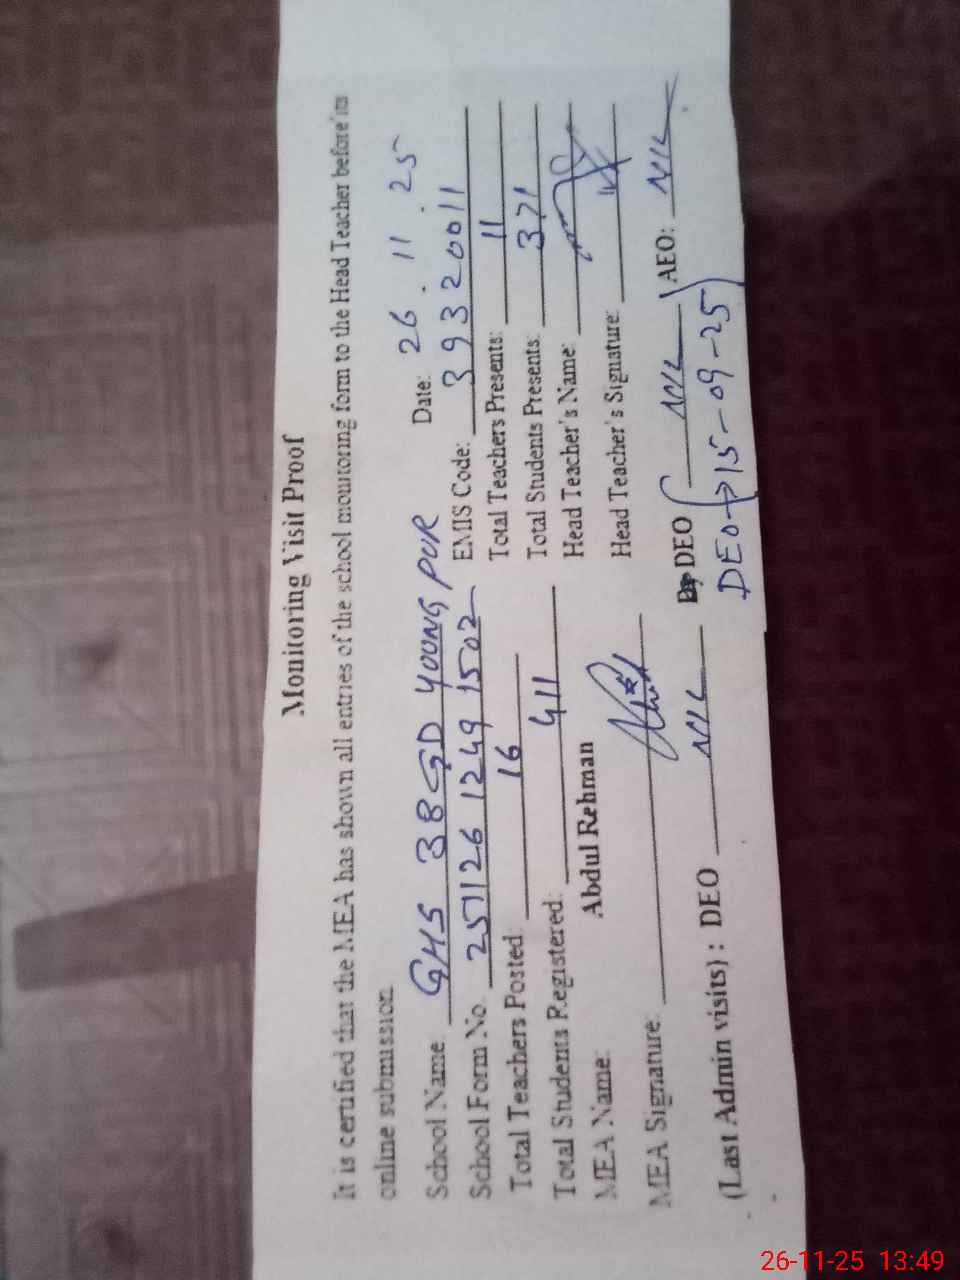 Monitoring Visit Proof
It is certified that the MEA has shown all entries of the school monitoring form to the Head Teacher before its
online submission.
Date: 26.11.25
School Name: GHS 38GD YOUNG PUR
EMIS Code: 39320011
School Form No. 251126 1249 1502
Total Teachers Presents: 11
Total Teachers Posted: 16
Total Students Presents: 371
Total Students Registered: 411
Head Teacher's Name:
MEA Name: Abdul Rehman
Head Teacher's Signature:
MEA Signature:
(Last Admin visits) : DEO NIL DEO NIL AEO: NIL
DEO → 15-09-25
26-11-25 13:49